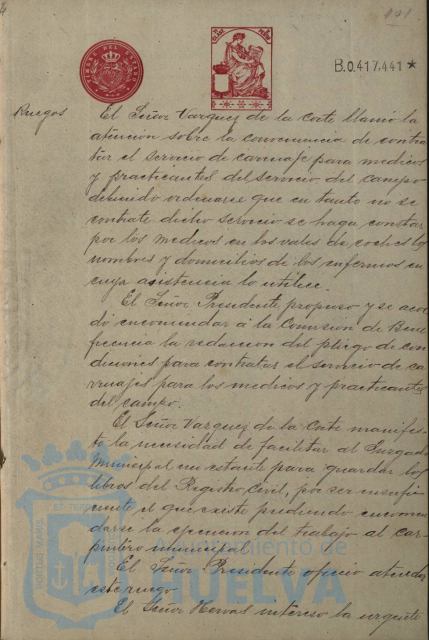 101
B.0.417,441 *
Ruegos El Señor Vazquez de la Corte llamó la
atención sobre la conveniencia de contra-
tar el servicio de carruaje para medicos
y practicantes del servicio del campo
debiendo ordenarse que en tanto no se
contrate dicho servicio se haga constar
por los medicos en los vales de coches los
nombres y domicilios de los enfermos en
cuya asistencia lo utilice.
El Señor Presidente propuso y se acor-
dó encomendar á la Comisión de Bene-
ficencia la redaccion del pliego de con-
diciones para contratar el servicio de ca-
rruajes para los medicos y practicantes
del campo.
El Señor Vazquez de la Corte manifes-
tó la necesidad de facilitar al Juzgado
Municipal un estante para guardar los
libros del Registro Civil, por ser insufi-
ciente el que existe pudiendo encomen-
darse la ejecucion del trabajo al car-
pintero municipal.
El Señor Presidente ofreció atender
este ruego.
El Señor Hervas interesó la urgente
Ayuntamiento de
HUELVA